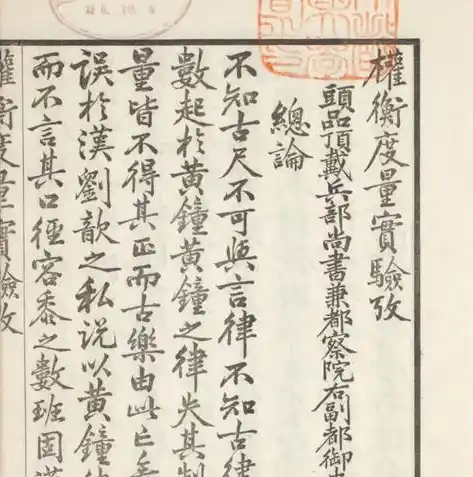 權衡度量實驗攷
頭品頂戴兵部尚書兼都察院右副都御史
總論
不知古尺不可與言律不知古律
數起於黃鐘黃鐘之律失其制
量皆不得其正而古樂由此亡矣
誤於漢劉歆之私說以黃鐘
而不言其口徑容黍之數班固漢
權衡度量實驗攷